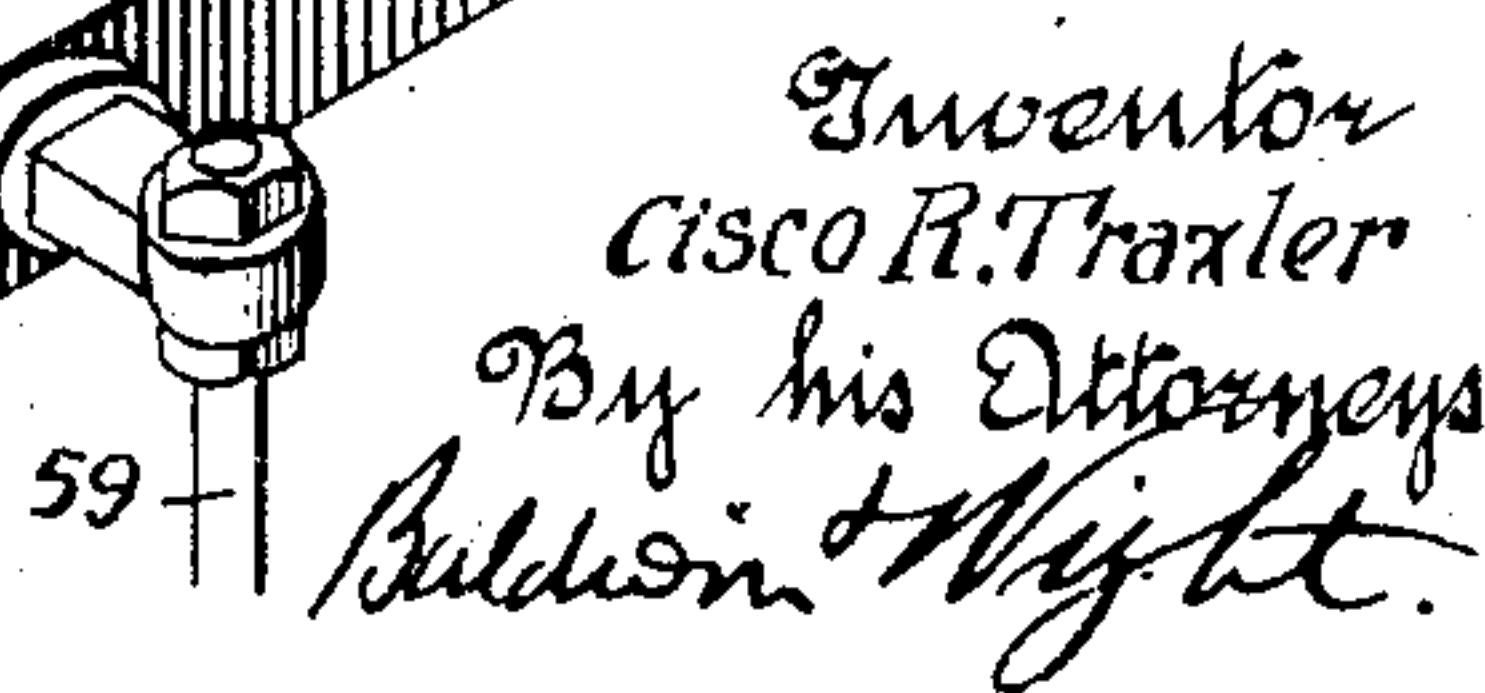 Inventor
Cisco R. Traxler
By his Attorneys
Baldwin & Wight.
59